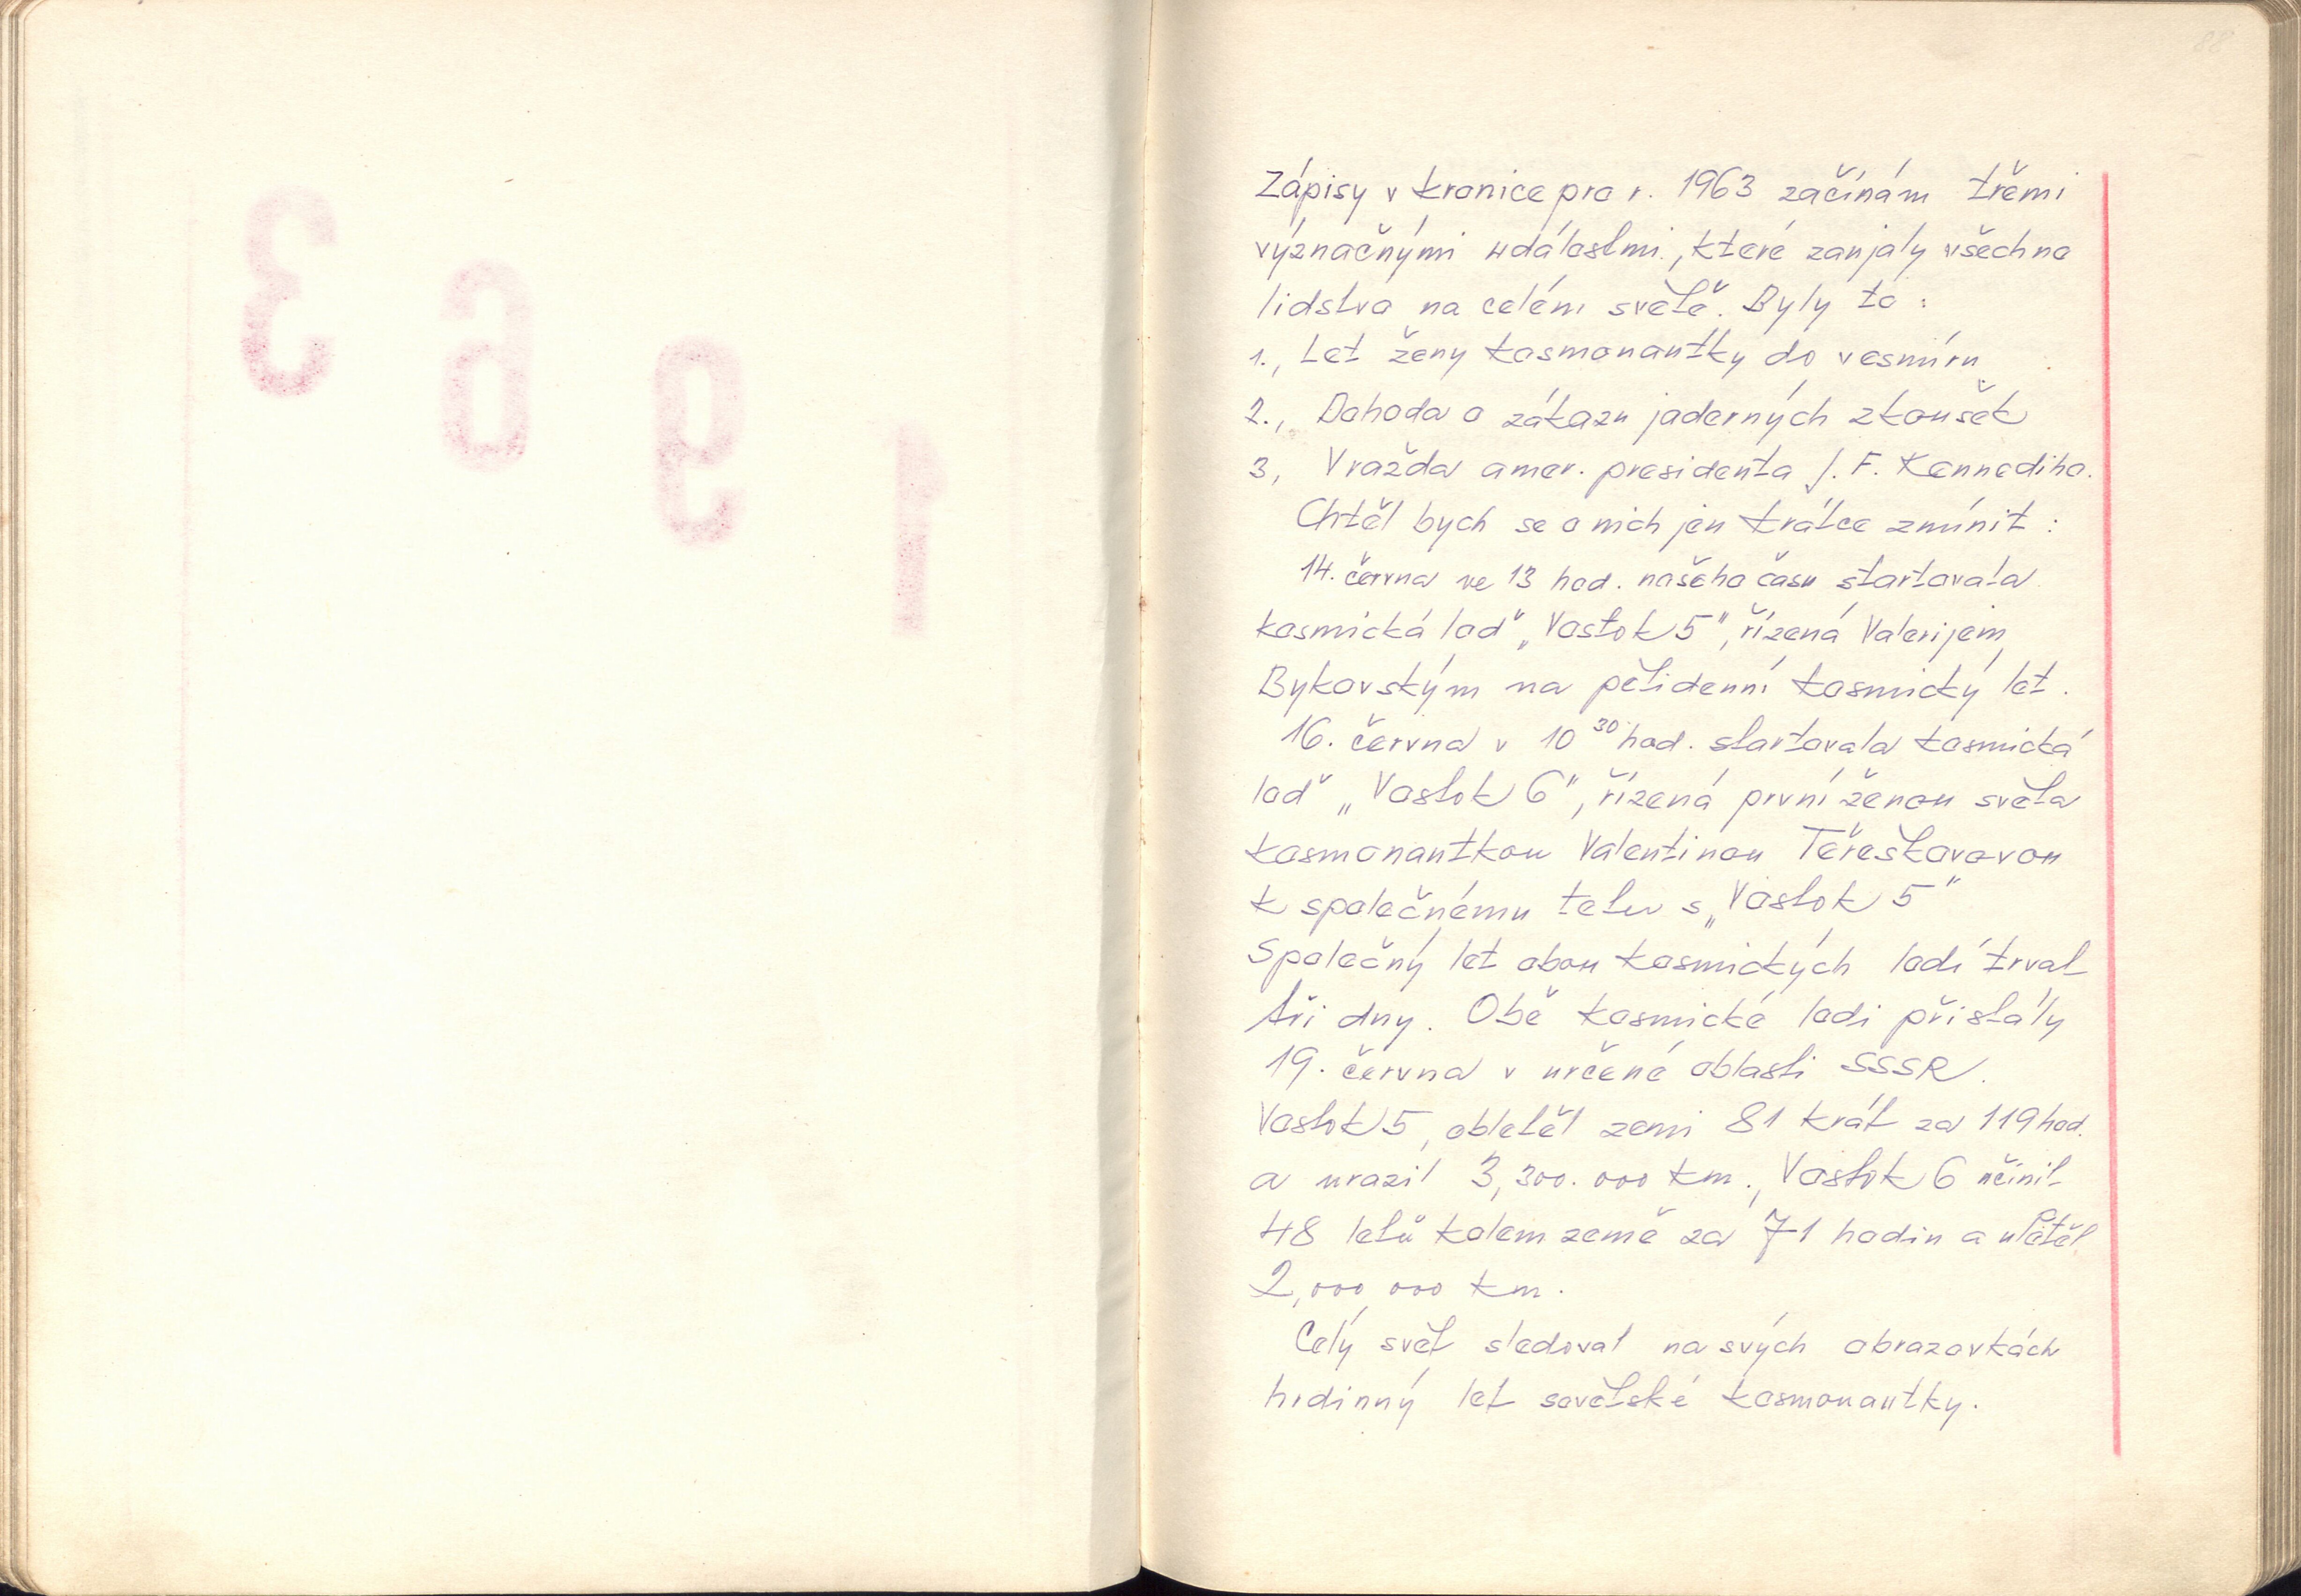 1963
88
Zápisy v kronice pro r. 1963 začínám třěmi
význačnými událostmi, které zaujaly všechno
lidstvo na celém světě. Byly to :
1., Let ženy kosmonautky do vesmíru
2., Dohoda o zákazu jaderných zkoušek
3, Vražda amer. presidenta J. F. Kennediho.
Chtěl bych se o nich jen krátce zmínit :
14. června ve 13 hod. našeho času startovala
kosmická loď „Vostok 5", řízená Valerijem
Bykovským na pětidenní kosmický let.
16. června v 10 30 hod. startovala kosmická
loď „Vostok 6", řízená první ženou světa
kosmonautkou Valentinou Těreškovovou
k společnému letu s „Vostok 5"
Společný let obou kosmických lodí trval
tři dny. Obě kosmické lodi přistály
19. června v určené oblasti SSSR.
Vostok 5, obletěl zemi 81 krát za 119 hod.
a urazil 3,300.000 km., Vostok 6 učinil
48 letů kolem země za 71 hodin a uletěl
2,000,000 km.
Celý svět sledoval na svých obrazovkách
hrdinný let sovětské kosmonautky.